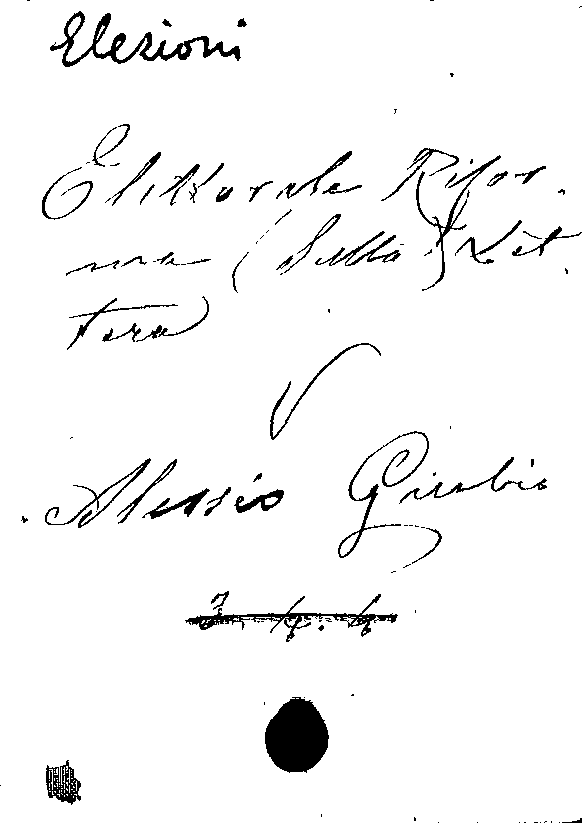 Elezioni
Elettorale Rifor-
ma (Sulla) Let-
tera
V
Alessio Giulio